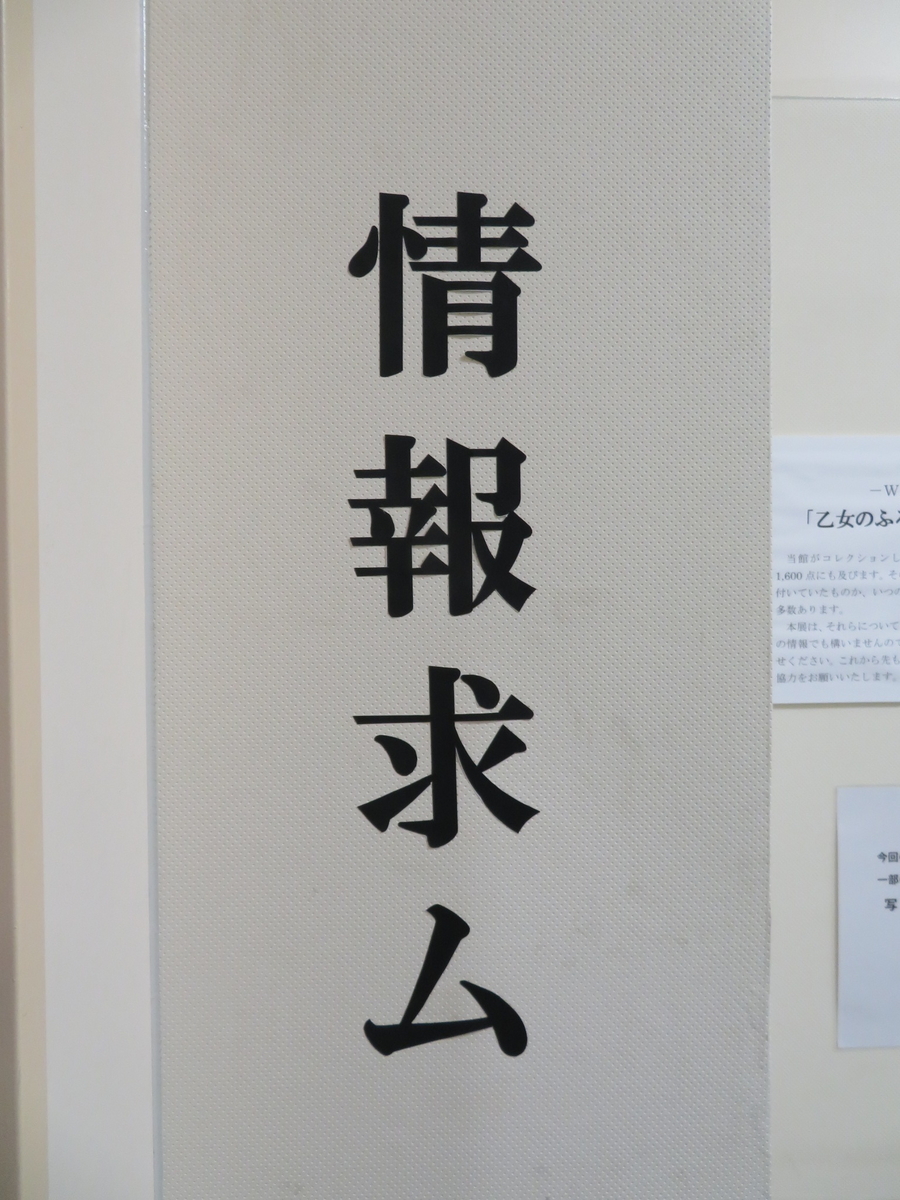 情報求ム
―W
「乙女のふろ
当館がコレクションし
1,600点にも及びます。そ
付いていたものか、いつの
多数あります。
本展は、それらについて
の情報でも構いませんので
せください。これから先も
協力をお願いいたします。
今回
一部
写